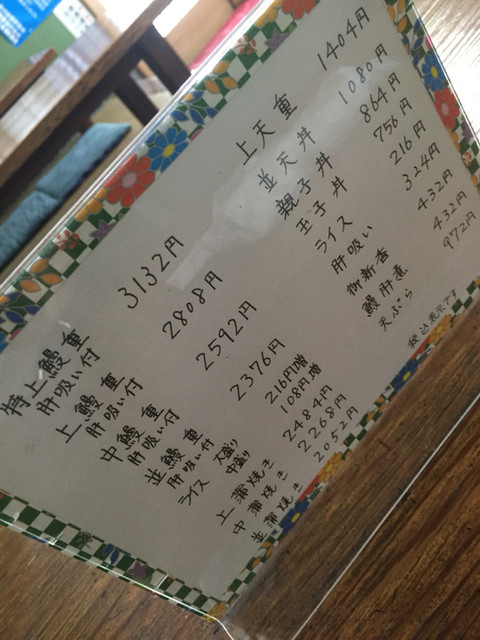 特上鰻重 3132円
肝吸い付
上鰻重 2808円
肝吸い付
中鰻重 2592円
肝吸い付
並鰻重 2376円
肝吸い付
ライス 大盛り 216円増
中盛り 108円増
上蒲焼き 2484円
中蒲焼き 2268円
並蒲焼き 2052円
上天重 1404円
並天丼 1080円
親子丼 864円
玉子丼 756円
ライス 216円
肝吸い 324円
御新香 432円
鰻肝煮 432円
天ぷら 972円
税込表示です